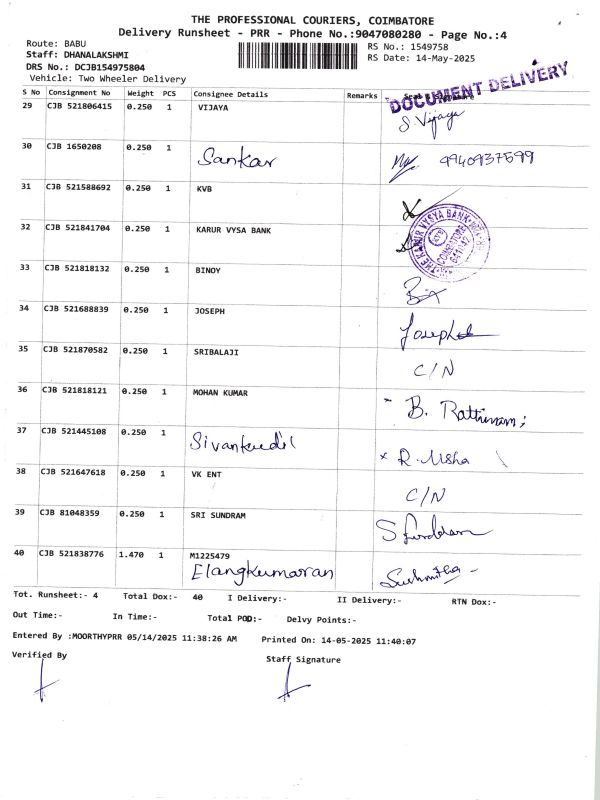 THE PROFESSIONAL COURIERS, COIMBATORE
Delivery Runsheet - PRR - Phone No.:9047080280 - Page No.:4
Route: BABU
RS No.: 1549758
Staff: DHANALAKSHMI
RS Date: 14-May-2025
DRS No.: DCJB154975804
Vehicle: Two Wheeler Delivery
DOCUMENT DELIVERY
S No Consignment No Weight PCS Consignee Details Remarks
29 CJB 521806415 0.250 1 VIJAYA S. Vijaya
30 CJB 1650208 0.250 1 Sankar 9940937599
31 CJB 521588692 0.250 1 KVB
32 CJB 521841704 0.250 1 KARUR VYSA BANK
THE KARUR VYSYA BANK COIMBATORE
33 CJB 521818132 0.250 1 BINOY
34 CJB 521688839 0.250 1 JOSEPH Joseph
35 CJB 521870582 0.250 1 SRIBALAJI C/N
36 CJB 521818121 0.250 1 MOHAN KUMAR B. Rathinam;
37 CJB 521445108 0.250 1 R. Usha
38 CJB 521647618 0.250 1 VK ENT C/N
39 CJB 81048359 0.250 1 SRI SUNDRAM
40 CJB 521838776 1.470 1 M1225479
Elangkumaran
Tot. Runsheet:- 4 Total Dox:- 40 I Delivery:- II Delivery:- RTN Dox:-
Out Time:- In Time:- Total POD:- Delvy Points:-
Entered By :MOORTHYPRR 05/14/2025 11:38:26 AM Printed On: 14-05-2025 11:40:07
Verified By Staff Signature